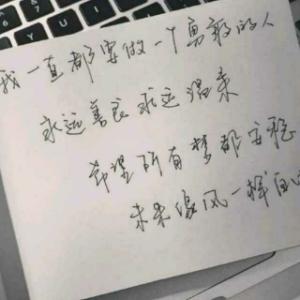 我一直都要做一个勇敢的人
永远善良永远温柔
希望所有梦都安稳
未来像风一样自